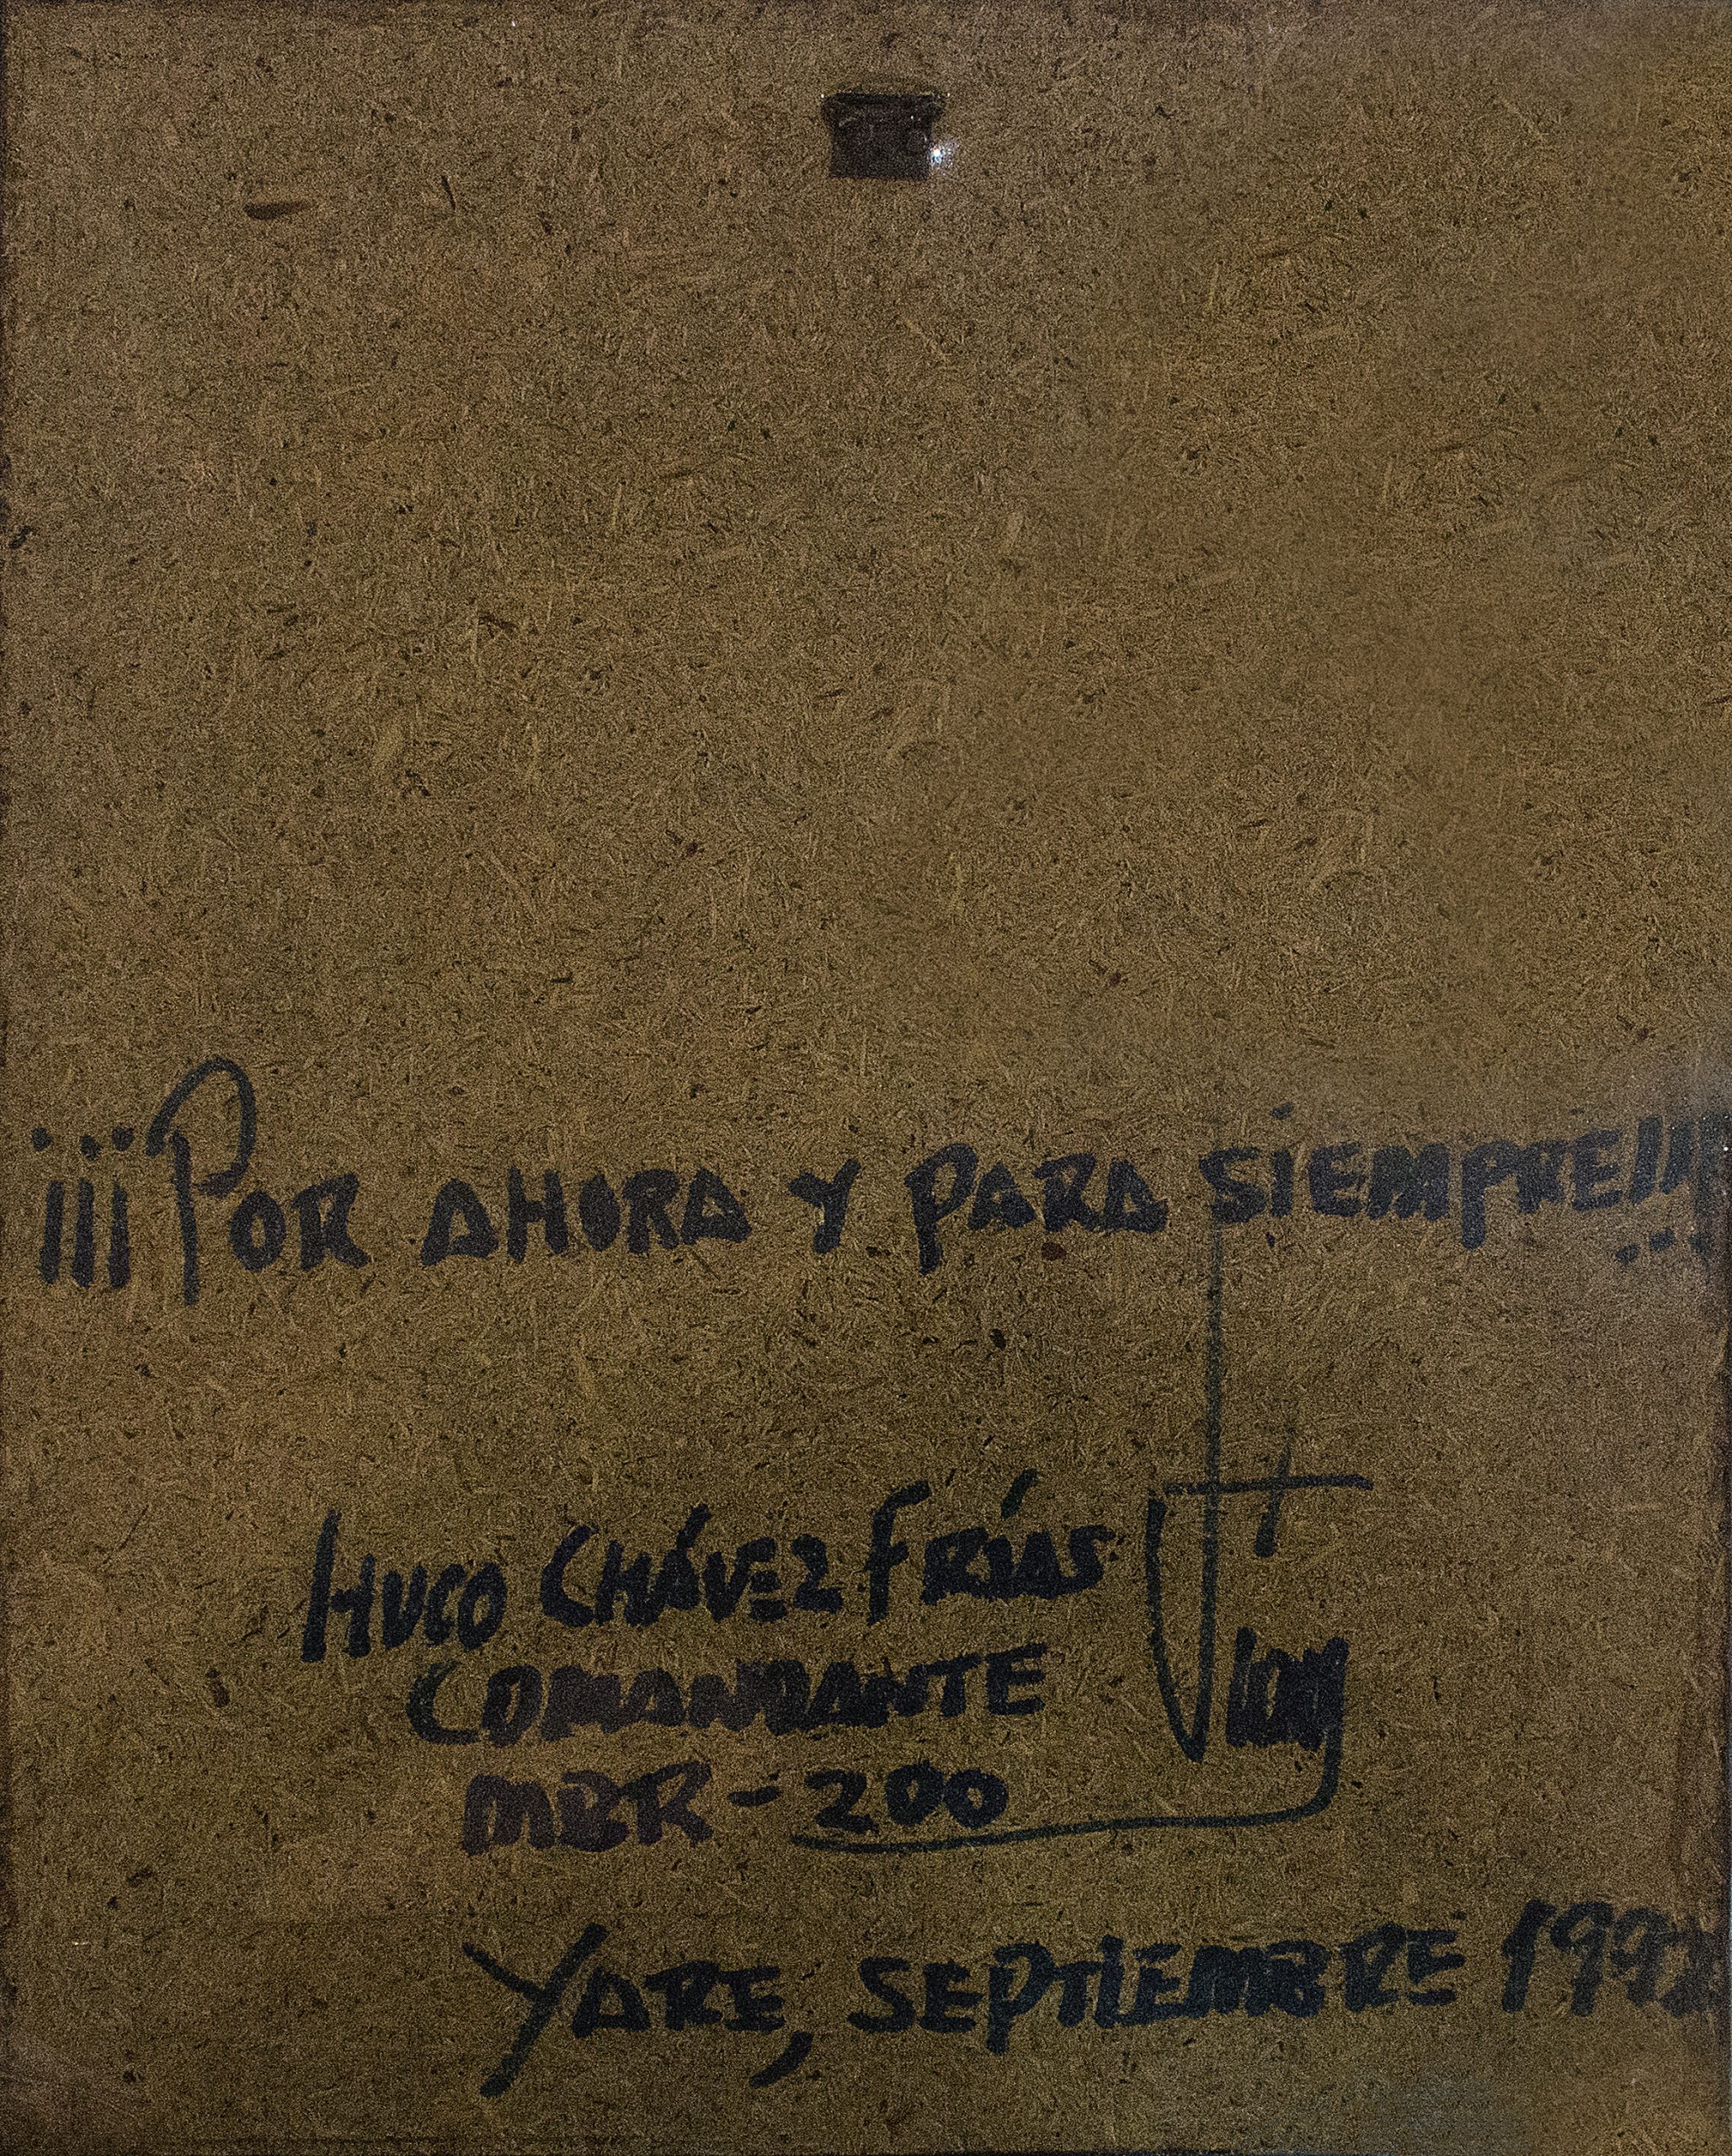 ¡¡¡POR AHORA Y PARA SIEMPRE!!!
HUGO CHÁVEZ FRÍAS
COMANDANTE
MBR-200
YARE, SEPTIEMBRE 1992